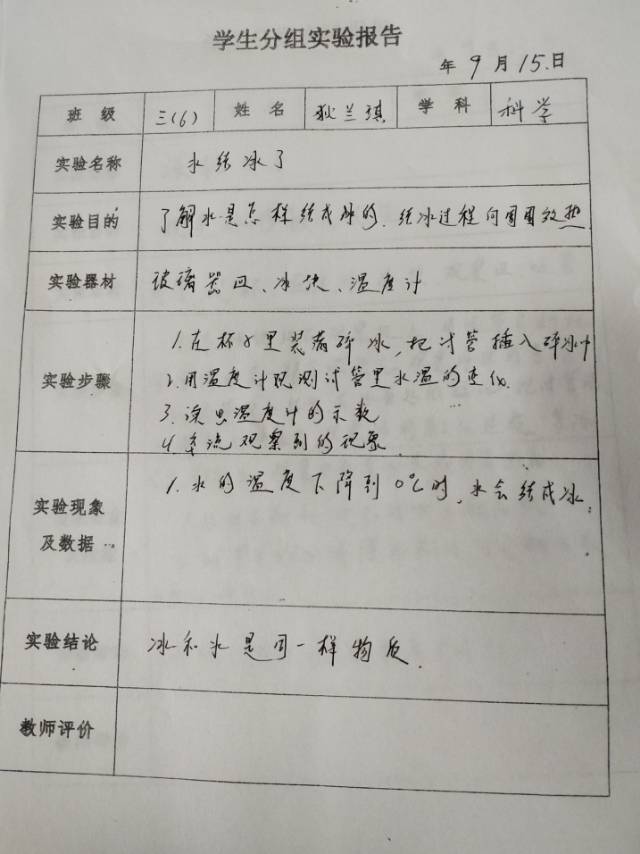 学生分组实验报告
年 9 月 15.日
班 级 三(6) 姓 名 狄兰琪 学 科 科学
实验名称 水结冰了
实验目的 了解水是怎样结成冰的.结冰过程向周围放热.
实验器材 玻璃器皿、冰块、温度计
1.在杯子里装满碎冰,把试管插入碎冰中
实验步骤 2.用温度计观测试管里水温的变化.
3.读出温度计的示数
4.交流观察到的现象.
实验现象 1.水的温度下降到0℃时,水会结成冰;
及数据
实验结论 冰和水是同一样物质.
教师评价